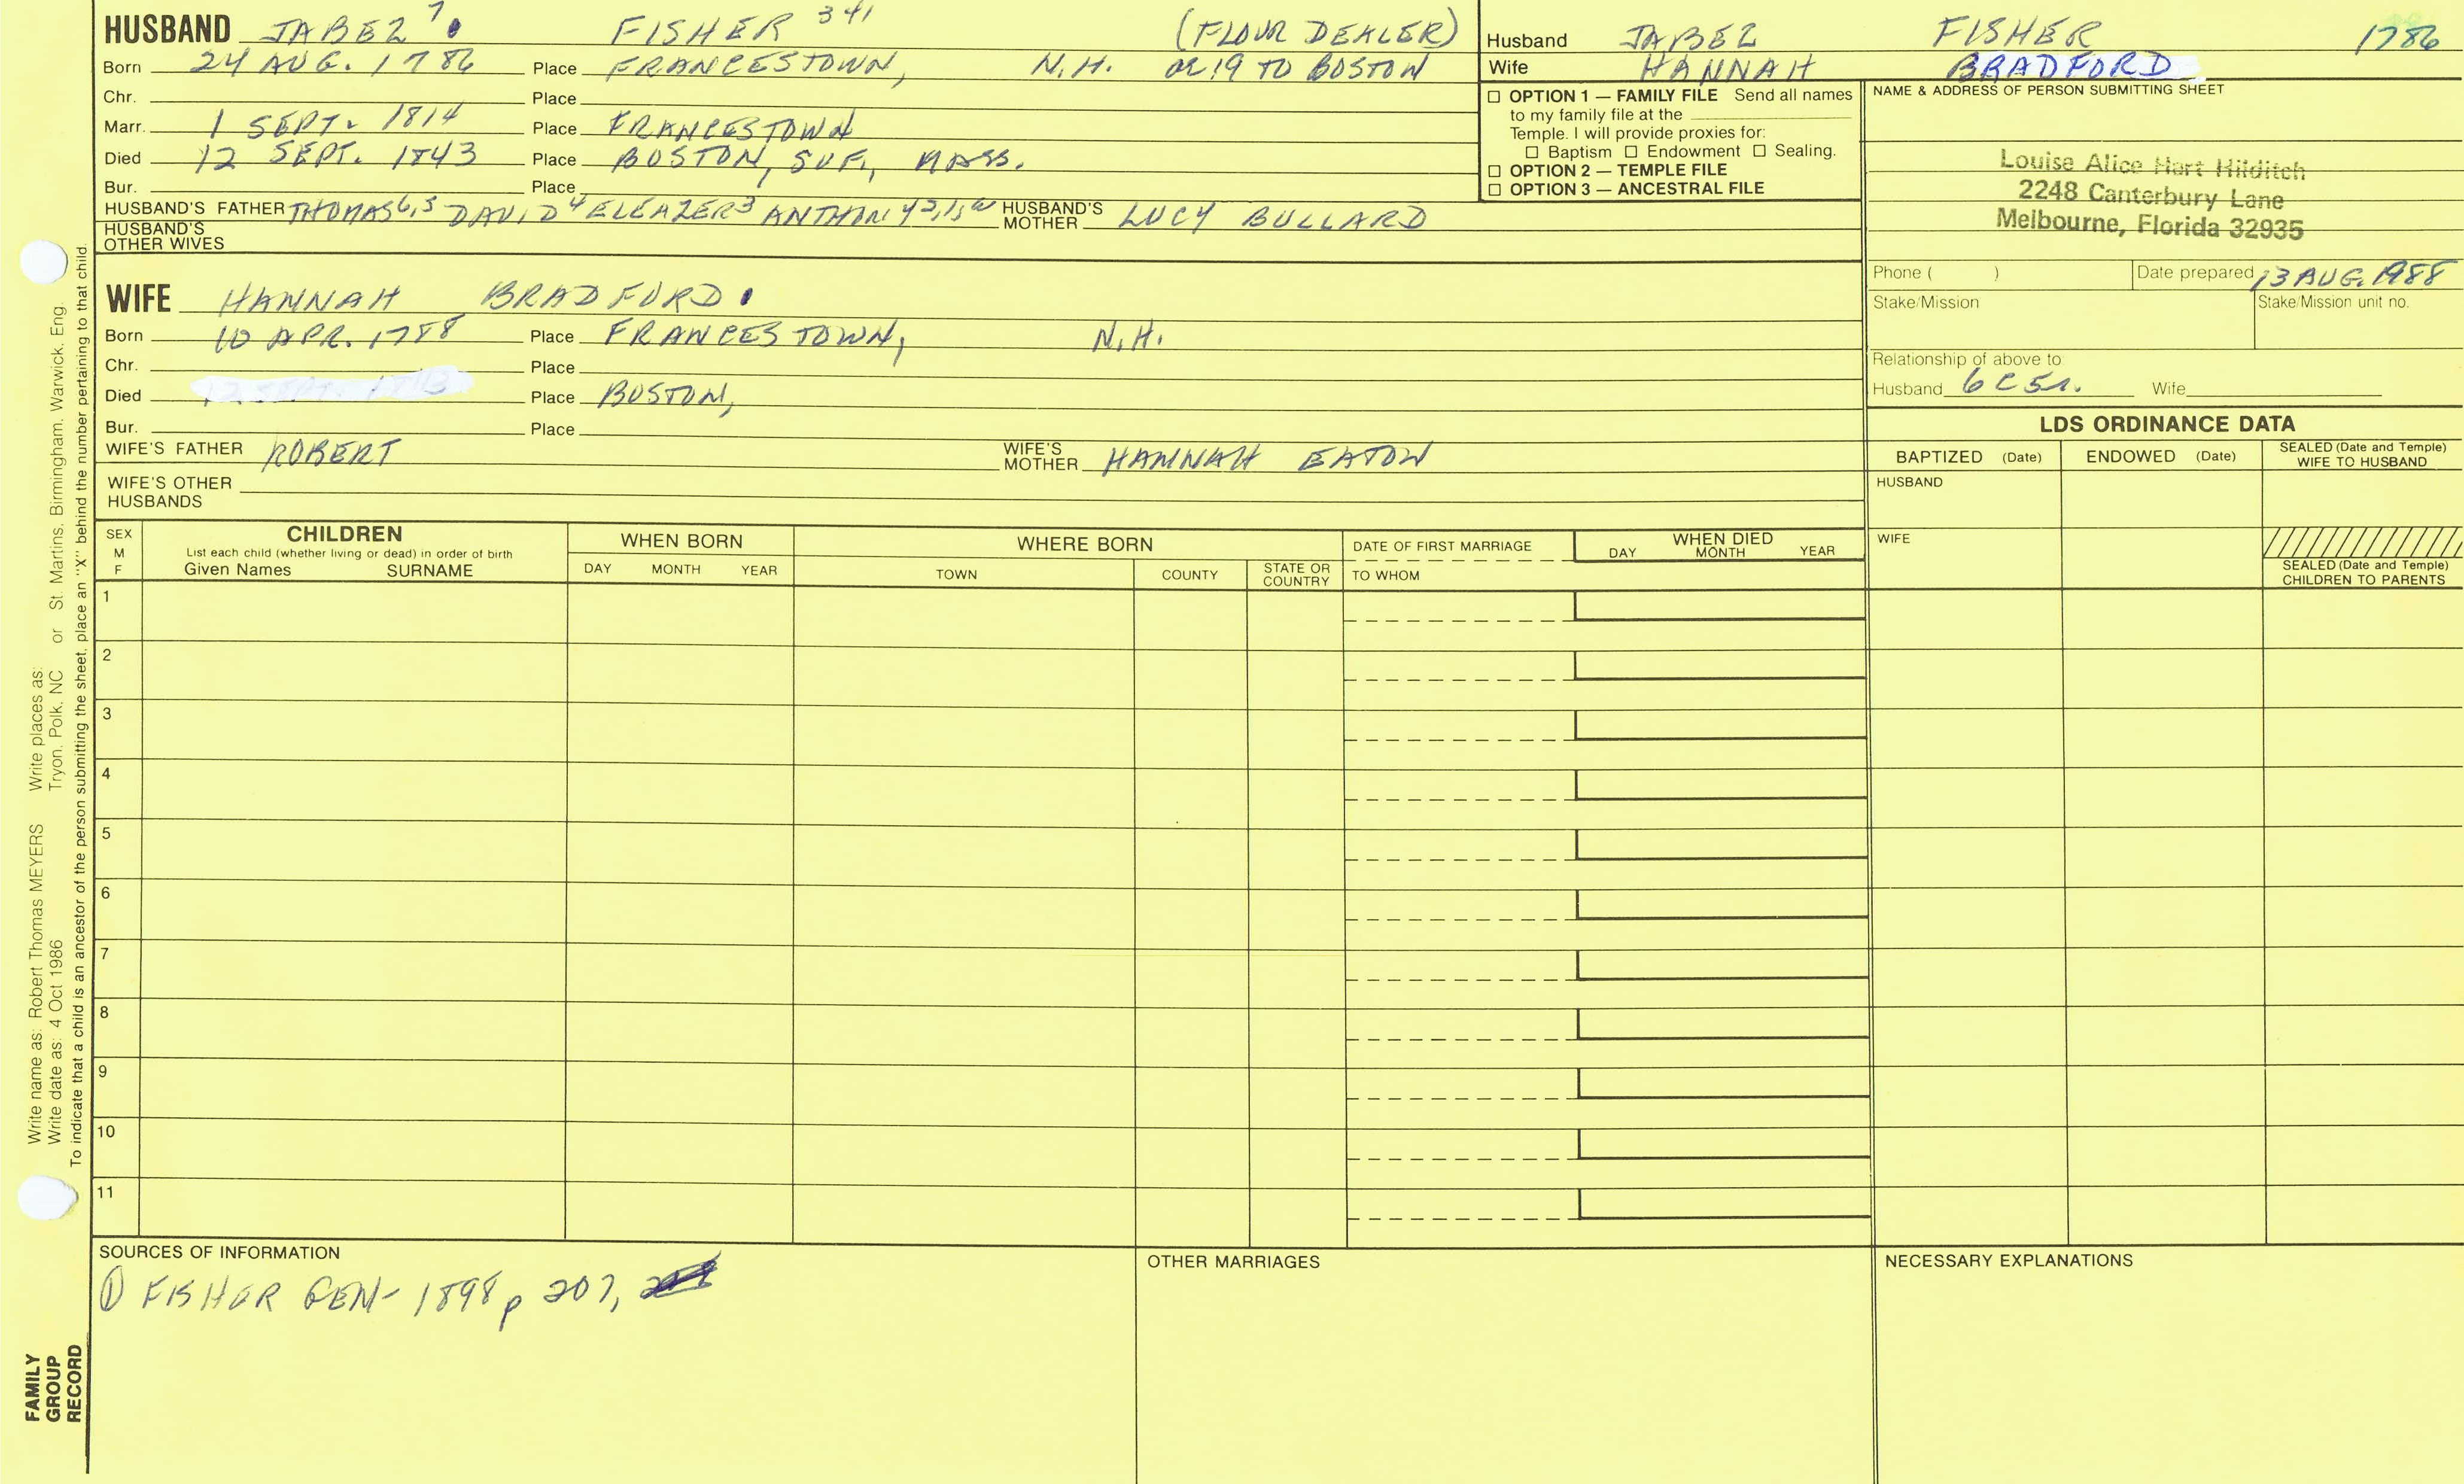 HUSBAND JABEZ 7 FISHER 341 (FLOUR DEALER)
Born 24 AUG. 1786 Place FRANCESTOWN, N.H. 19 TO BOSTON
Chr. Place
Marr. 1 SEPT. 1814 Place FRANCESTOWN
Died 12 SEPT. 1843 Place BOSTON, SUF., MASS.
Bur. Place
HUSBAND'S FATHER THOMAS 6,5 DAVID 4 ELEAZER 3 ANTHONY 2,1 HUSBAND'S MOTHER LUCY BULLARD
HUSBAND'S OTHER WIVES
WIFE HANNAH BRADFORD
Born 10 APR. 1788 Place FRANCESTOWN, N.H.
Chr. Place
Died Place BOSTON,
Bur. Place
WIFE'S FATHER ROBERT WIFE'S MOTHER HANNAH EATON
WIFE'S OTHER HUSBANDS
Husband JABEZ FISHER 1786
Wife HANNAH BRADFORD
☐ OPTION 1 — FAMILY FILE Send all names
to my family file at the
Temple. I will provide proxies for:
☐ Baptism ☐ Endowment ☐ Sealing.
☐ OPTION 2 — TEMPLE FILE
☐ OPTION 3 — ANCESTRAL FILE
NAME & ADDRESS OF PERSON SUBMITTING SHEET
Louise Alice Hart Hilditch
2248 Canterbury Lane
Melbourne, Florida 32935
Phone ( ) Date prepared 13 AUG. 1988
Stake/Mission Stake/Mission unit no.
Relationship of above to
Husband 6C5R. Wife
LDS ORDINANCE DATA
BAPTIZED (Date) ENDOWED (Date) SEALED (Date and Temple) WIFE TO HUSBAND
HUSBAND
WIFE
SEALED (Date and Temple)
CHILDREN TO PARENTS
SEX M F
CHILDREN
List each child (whether living or dead) in order of birth
Given Names SURNAME
WHEN BORN
DAY MONTH YEAR
WHERE BORN
TOWN COUNTY STATE OR COUNTRY
DATE OF FIRST MARRIAGE
TO WHOM
WHEN DIED
DAY MONTH YEAR
1
2
3
4
5
6
7
8
9
10
11
SOURCES OF INFORMATION
① FISHER GEN- 1898 p 207,
OTHER MARRIAGES
NECESSARY EXPLANATIONS
Write name as: Robert Thomas MEYERS Write places as:
Write date as: 4 Oct 1986 Tryon, Polk, NC or St. Martins, Birmingham, Warwick, Eng.
To indicate that a child is an ancestor of the person submitting the sheet, place an "X" behind the number pertaining to that child.
FAMILY
GROUP
RECORD